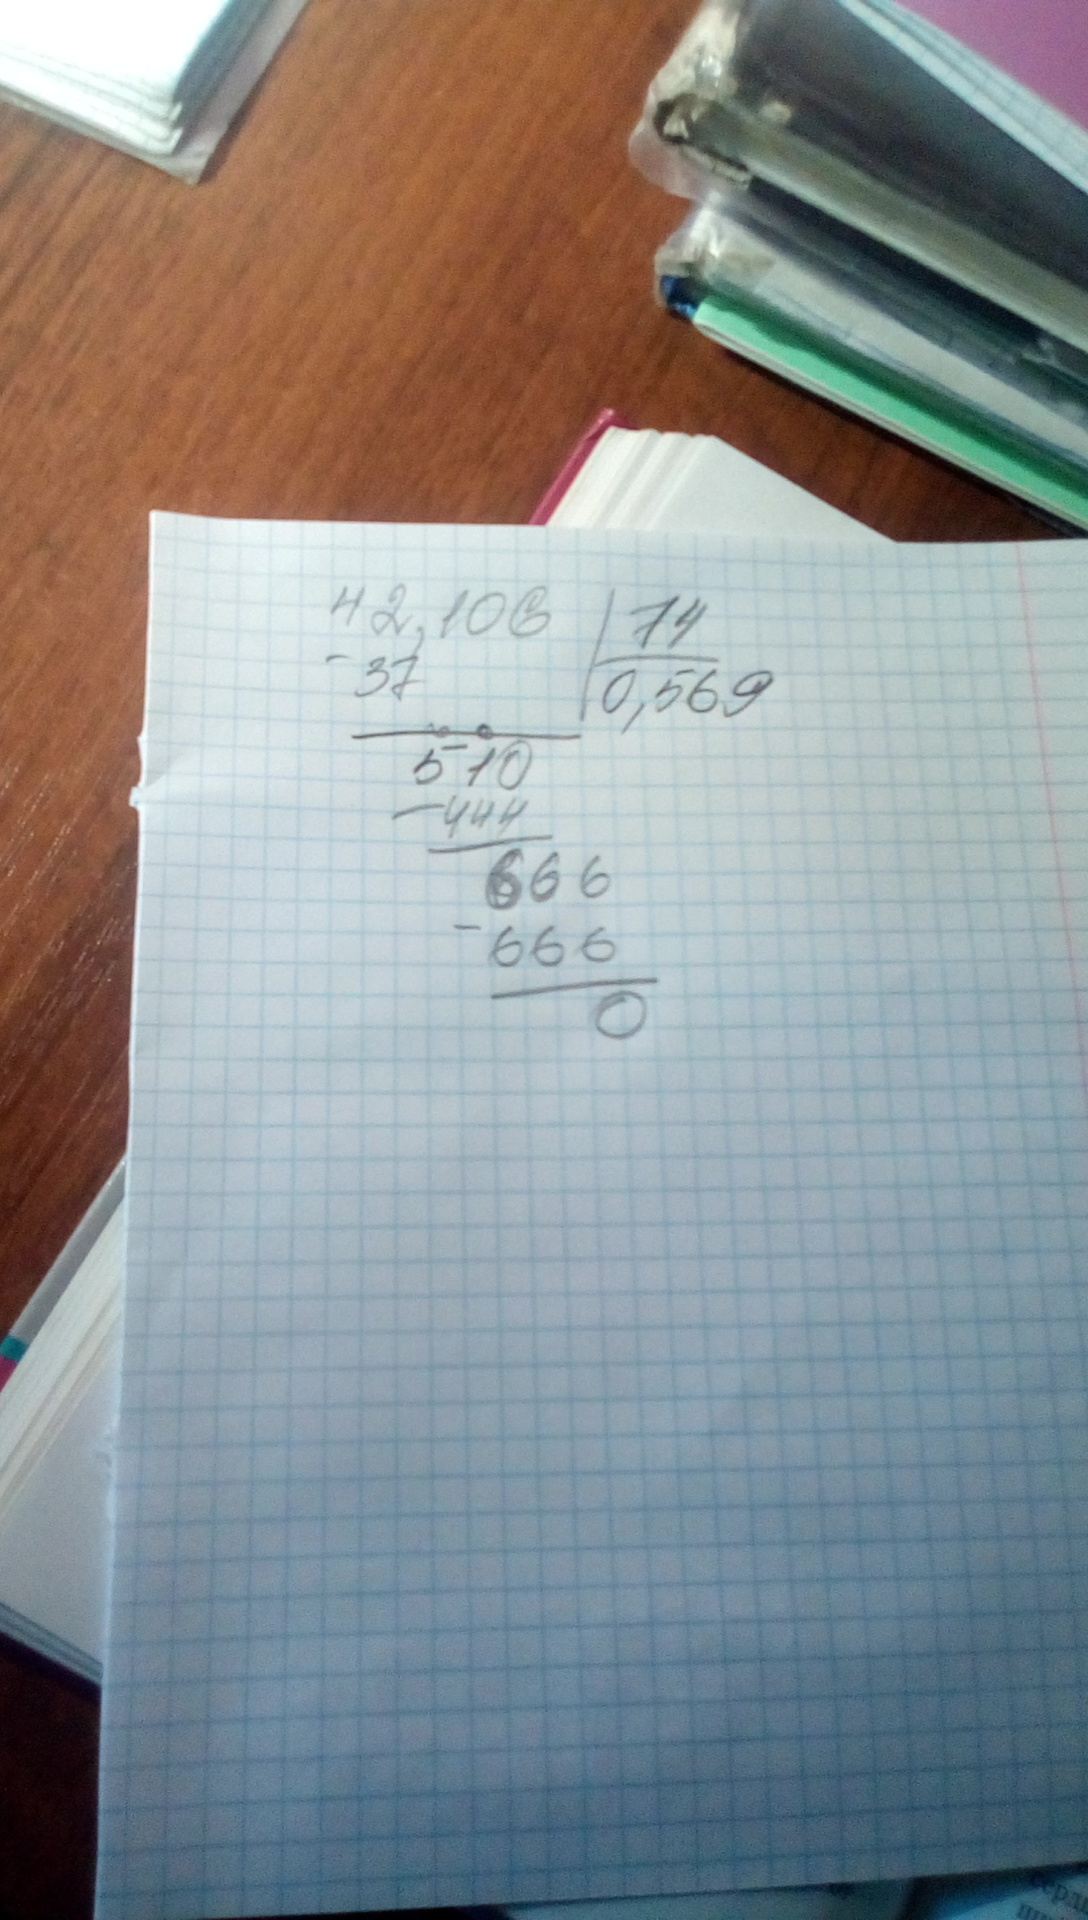 42,106 74
-37 0,569
510
-444
666
-666
0